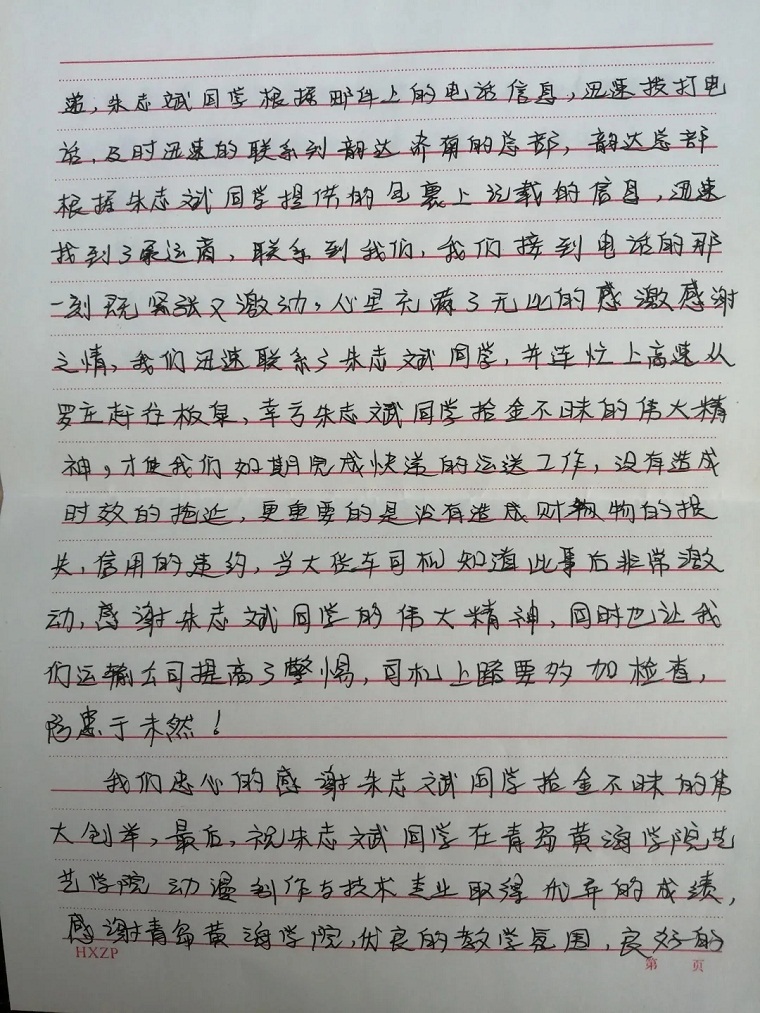 递，朱志斌同学根据邮件上的电话信息，迅速拨打电
话，及时迅速的联系到韵达济南的总部，韵达总部
根据朱志斌同学提供的包裹上记载的信息，迅速
找到了承运商，联系到我们，我们接到电话的那
一刻既紧张又激动，心里充满了无比的感激感谢
之情，我们迅速联系了朱志斌同学，并连忙上高速从
罗庄赶往板泉，幸亏朱志斌同学拾金不昧的伟大精
神，才使我们如期完成快递的运送工作，没有造成
时效的拖延，更重要的是没有造成财物的损
失，信用的违约，当大货车司机知道此事后非常激
动，感谢朱志斌同学的伟大精神，同时也让我
们运输公司提高了警惕，司机上路要多加检查，
防患于未然！
我们忠心的感谢朱志斌同学拾金不昧的伟
大创举，最后，祝朱志斌同学在青岛黄海学院艺
艺学院动漫制作与技术专业取得优异的成绩，
感谢青岛黄海学院，优良的教学氛围，良好的
HXZP 第 页